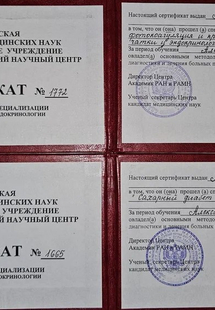 СКАЯ
ЦИНСКИХ НАУК
Е УЧРЕЖДЕНИЕ
Й НАУЧНЫЙ ЦЕНТР
КАТ № 1972
СПЕЦИАЛИЗАЦИИ
ДОКРИНОЛОГИИ
Настоящий сертификат выдан
в том, что он (она) прошел (а)
За период обучения
овладел(а) основными методами
диагностики и лечения больных
Директор Центра
Академик РАН и РАМН
Ученый секретарь Центра
кандидат медицинских наук
СКАЯ
ИНСКИХ НАУК
УЧРЕЖДЕНИЕ
Й НАУЧНЫЙ ЦЕНТР
АТ № 1665
ЕЦИАЛИЗАЦИИ
ОКРИНОЛОГИИ
Настоящий сертификат выдан
в том, что он (она) прошел (а)
"Сахарный диабет
За период обучения
овладел(а) основными методами
диагностики и лечения больных
Директор Центра
Академик РАН и РАМН
Ученый секретарь Центра
кандидат медицинских наук